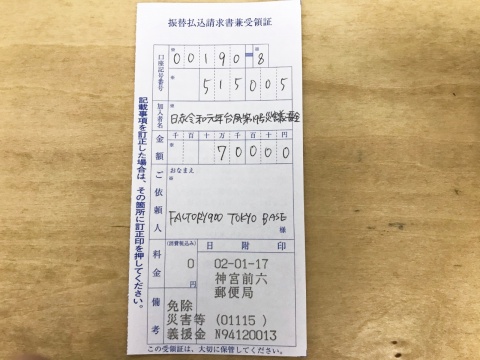 振替払込請求書兼受領証
口座記号番号
00190-8
515005
加入者名
日赤令和元年台風第19号災害義援金
金額
千百十万千百十円
70000
ご依頼人
おなまえ
FACTORY900 TOKYO BASE
様
料金
(消費税込み)
0
円
日附印
02-01-17
神宮前六
郵便局
備考
免除
災害等 (01115 )
義援金 N94120013
この受領証は、大切に保管してください。
記載事項を訂正した場合は、その箇所に訂正印を押してください。